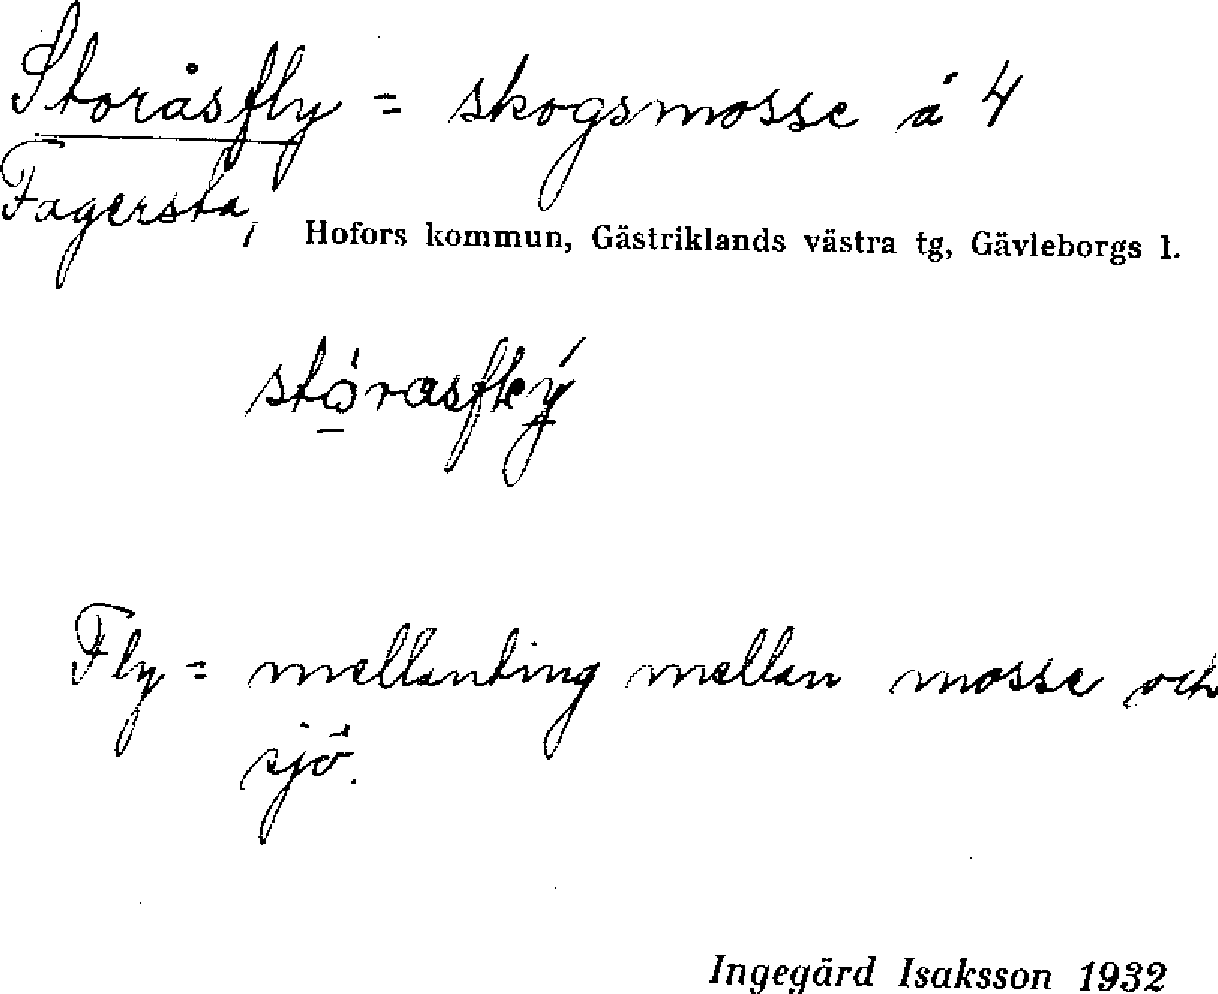 Storåsfly = skogsmosse å 4
Fagersta, Hofors kommun, Gästriklands västra tg, Gävleborgs l.
Fly = mellanting mellan mosse och
sjö.
Ingegärd Isaksson 1932